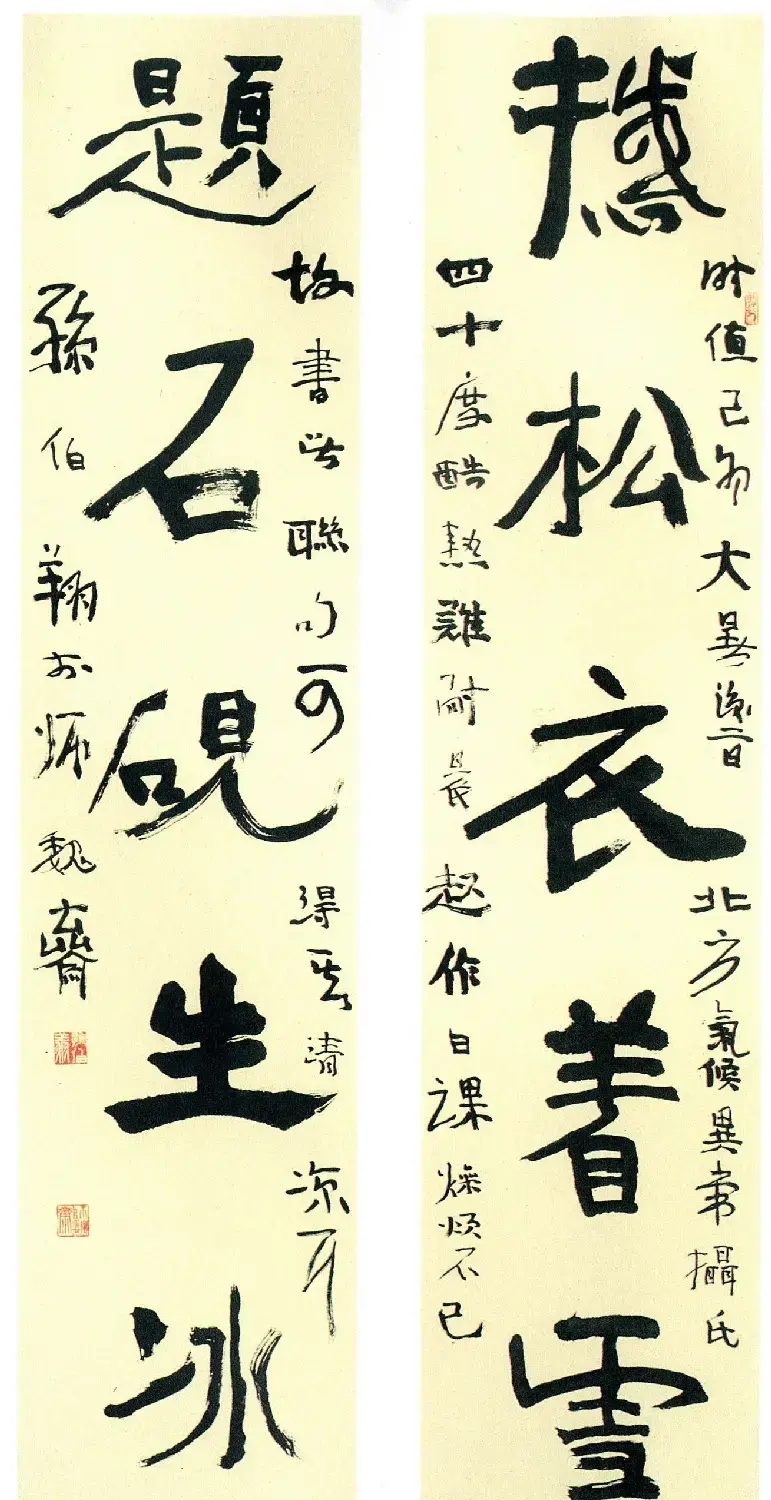 撼松衣着雪
時值己卯大暑 北方氣候異常攝氏
四十度酷熱難耐晨起作日課燥煩不已
題石硯生冰
故書此聯句可得 清涼耳
孫伯翔於師魏齋